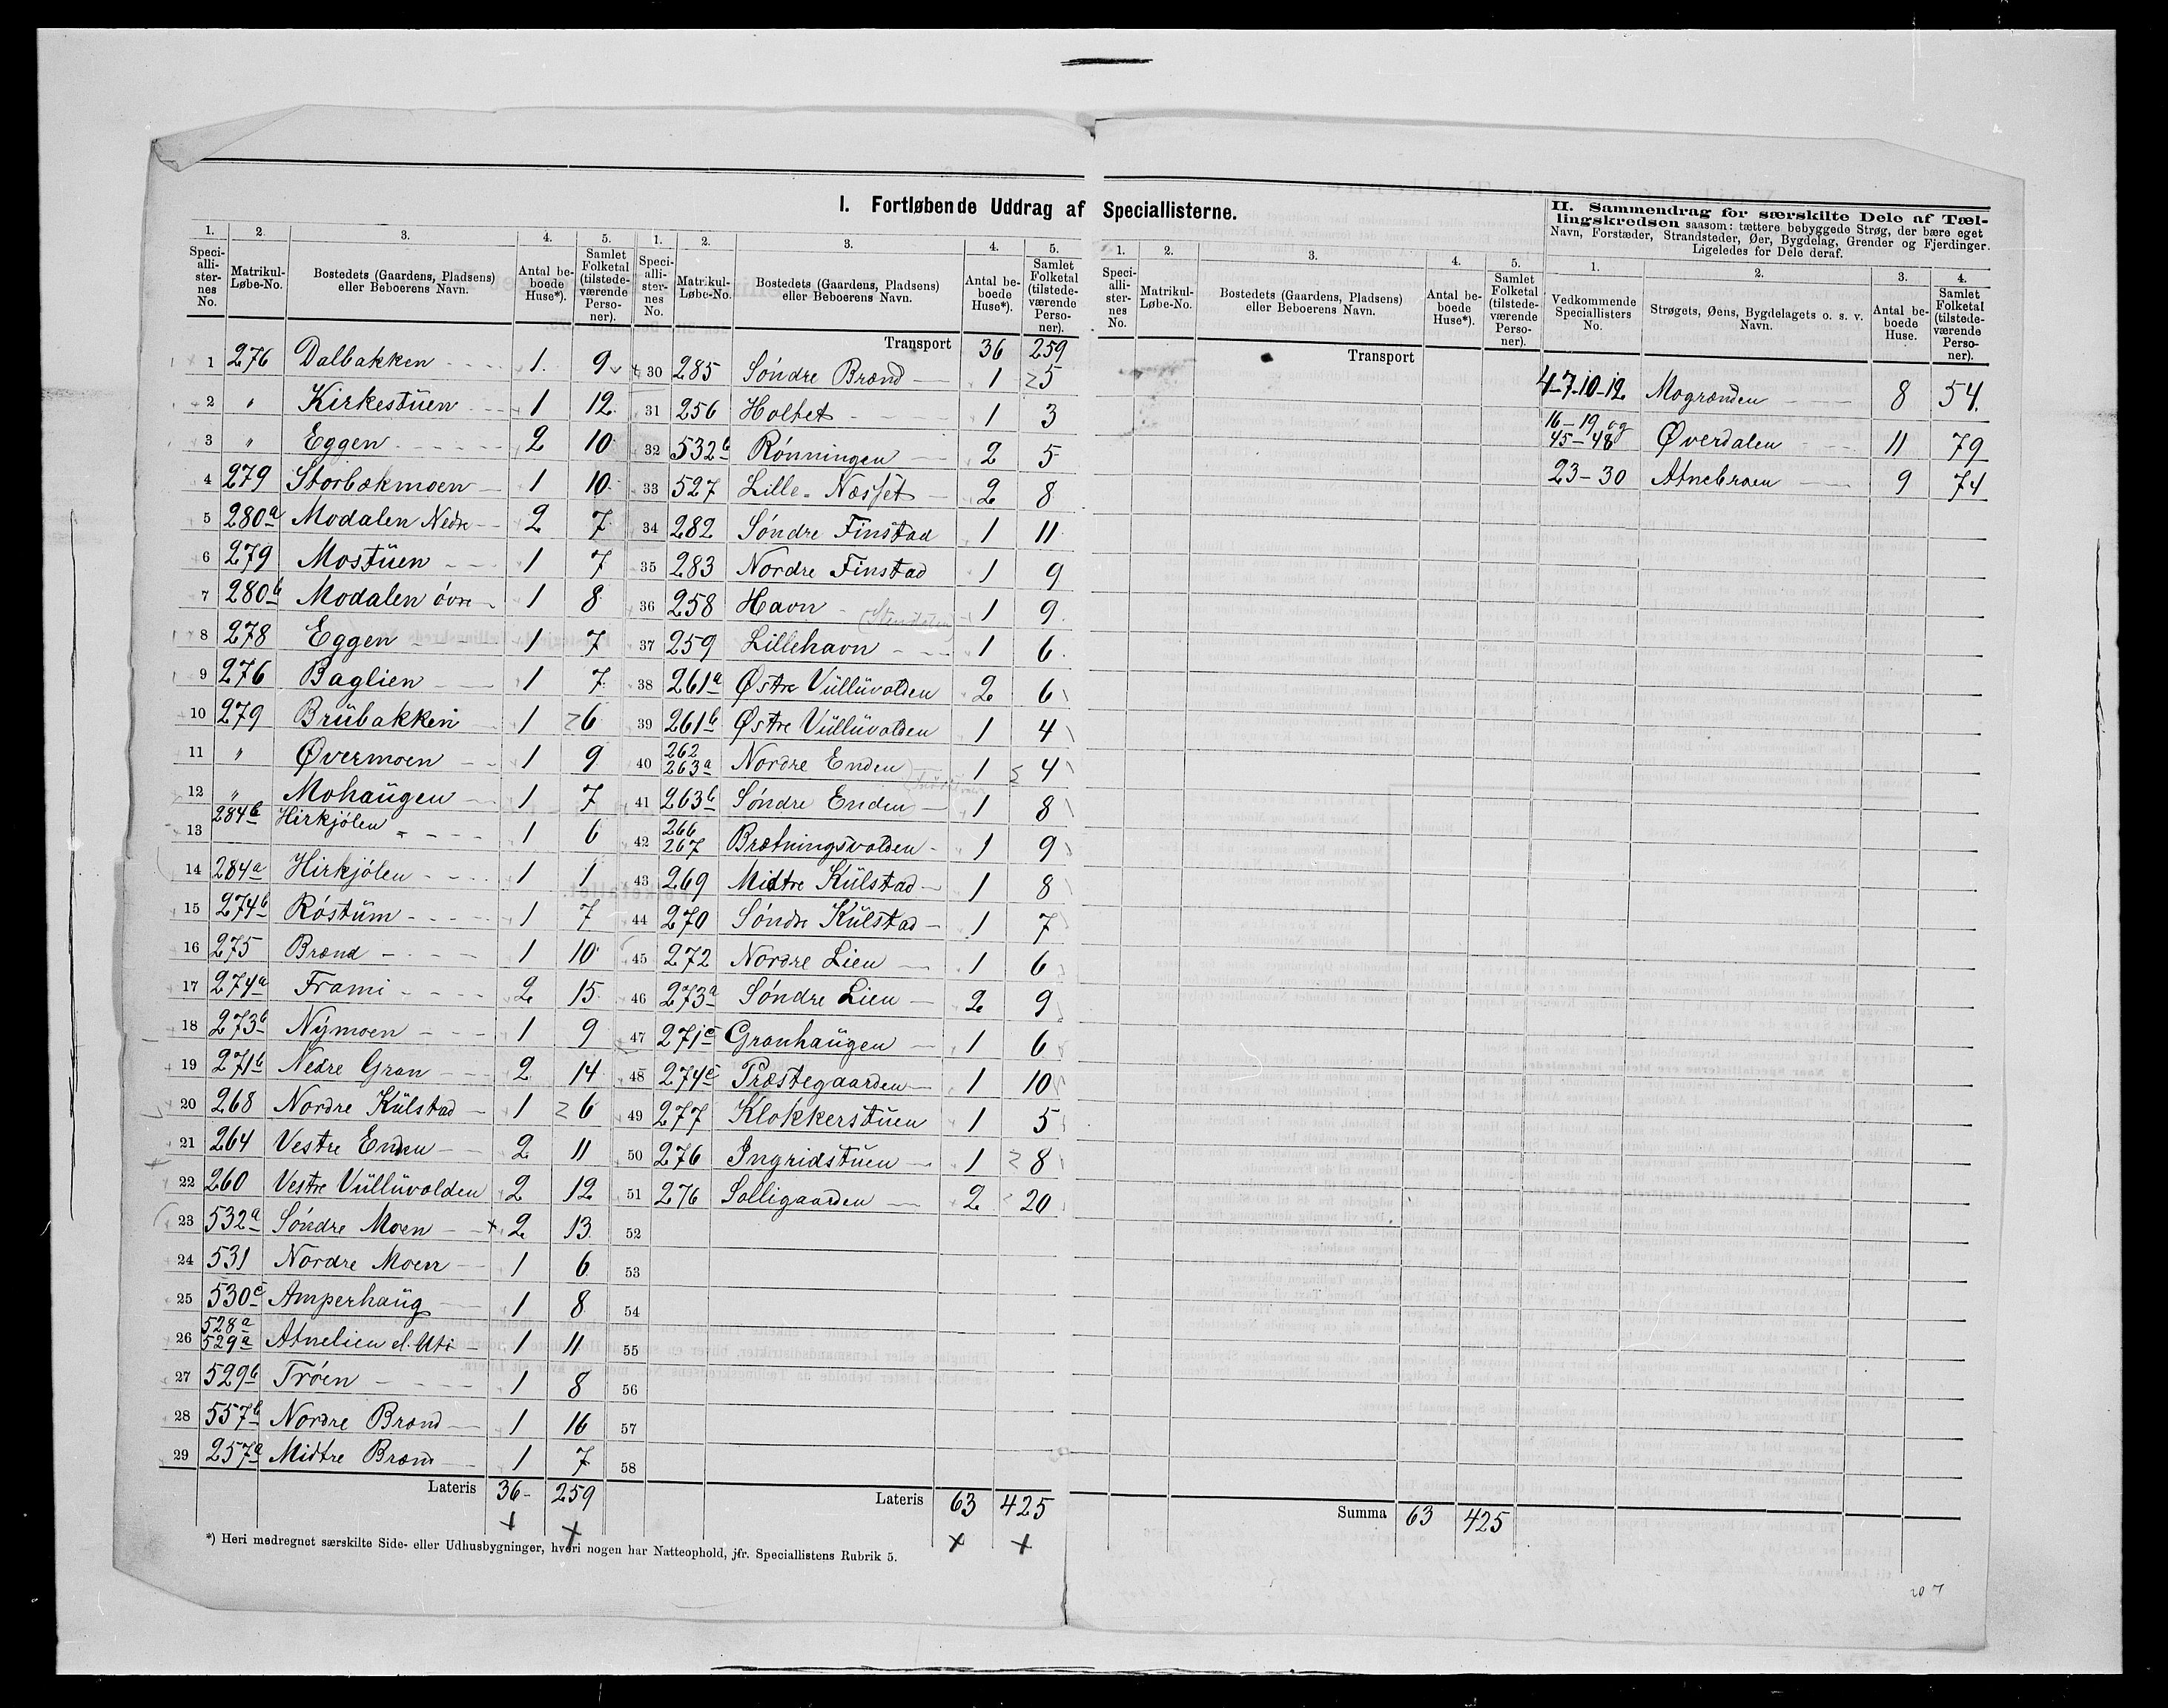 I. Fortløbende Uddrag af Speciallisterne.
1. 2. 3. 4. 5.
Speci-alli-ster-nes No. Matrikul-Løbe-No. Bostedets (Gaardens, Pladsens) eller Beboerens Navn. Antal be-boede Huse*). Samlet Folketal (tilstede-værende Perso-ner).
1 276 Dalbakken 1. 9
2 " Kirkestüen 1 12
3 " Eggen 2 10
4 279 Storbækmoen 1 10
5 280a Modalen Nedre 2 7
6 279 Mostüen 1 7
7 280b Modalen óvre 1 8
8 278 Eggen 1 7
9 276 Baglien 1 7
10 279 Brübakken 1 6
11 " Øvermoen 1 9
12 " Mohaügen 1 7
13 284b Hirkjólen 1 6
14 284a Hirkjólen 1 1
15 274b Róstüm 1 7
16 275 Brænd 1 10
17 274a Frami 2 15
18 273b Nýmoen 1 9
19 271b Nedre Gran 2 14
20 268 Nordre Külstad 1 6
21 264 Vestre Enden 2 11
22 260 Vestre Vüllüvolden 2 12
23 532a Sóndre Moen 2 13
24 531 Nordre Moen 1 6
25 530c Amperhaüg 1 8
26 528a 529a Atnelien el. Uti 1 11
27 529b Tróen 1 8
28 557b Nordre Brænd 1 16
29 257a Midtre Brænd 1 7
Lateris 36 259
1. 2. 3. 4. 5.
Speci-alli-ster-nes No. Matrikul-Løbe-No. Bostedets (Gaardens, Pladsens) eller Beboerens Navn. Antal be-boede Huse*). Samlet Folketal (tilstede-værende Perso-ner).
Transport 36 259
30 285 Sóndre Brænd 1 5
31 256 Holtet 1 3
32 532b Rónningen 2 5
33 527 Lille-Næsset 2 8
34 282 Sóndre Finstad 1 11
35 283 Nordre Finstad 1 9
36 258 Havn 1 9
37 259 Lillehavn 1 6
38 261a Østre Vüllüvolden 2 6
39 261b Østre Vüllüvolden 1 4
40 262 263a Nordre Enden 1 4
41 263b Sóndre Enden 1 8
42 266 267 Brætningsvolden 1 9
43 269 Midtre Külstad 1 8
44 270 Sóndre Külstad 1 7
45 272 Nordre Lien 1 6
46 273a Sóndre Lien 2 9
47 271c Granhaügen 1 6
48 274c Præstegaarden 1 10
49 277 Klokkerstüen 1 5
50 276 Ingridstüen 1 8
51 276 Solligaarden 2 20
52
53
54
55
56
57
58
Lateris 63 425
*) Heri medregnet særskilte Side- eller Udhusbygninger, hvori nogen har Natteophold, jfr. Speciallistens Rubrik 5.
1. 2. 3. 4. 5.
Speci-alli-ster-nes No. Matrikul-Løbe-No. Bostedets (Gaardens, Pladsens) eller Beboerens Navn. Antal be-boede Huse*). Samlet Folketal (tilstede-værende Perso-ner).
Transport
Summa 63 425
II. Sammendrag for særskilte Dele af Tæl-
lingskredsen saasom: tættere bebyggede Strøg, der bære eget
Navn, Forstæder, Strandsteder, Øer, Bygdelag, Grender og Fjerdinger.
Ligeledes for Dele deraf.
1. 2. 3. 4.
Vedkommende Speciallisters No. Strøgets, Øens, Bygdelagets o. s. v. Navn. Antal be-boede Huse. Samlet Folketal (tilstede-værende Perso-ner).
4-7.10-12 Mogrænden 8 54.
16-19 og 45-48 Øverdalen 11 79
23-30 Atnebroen 9 74
207